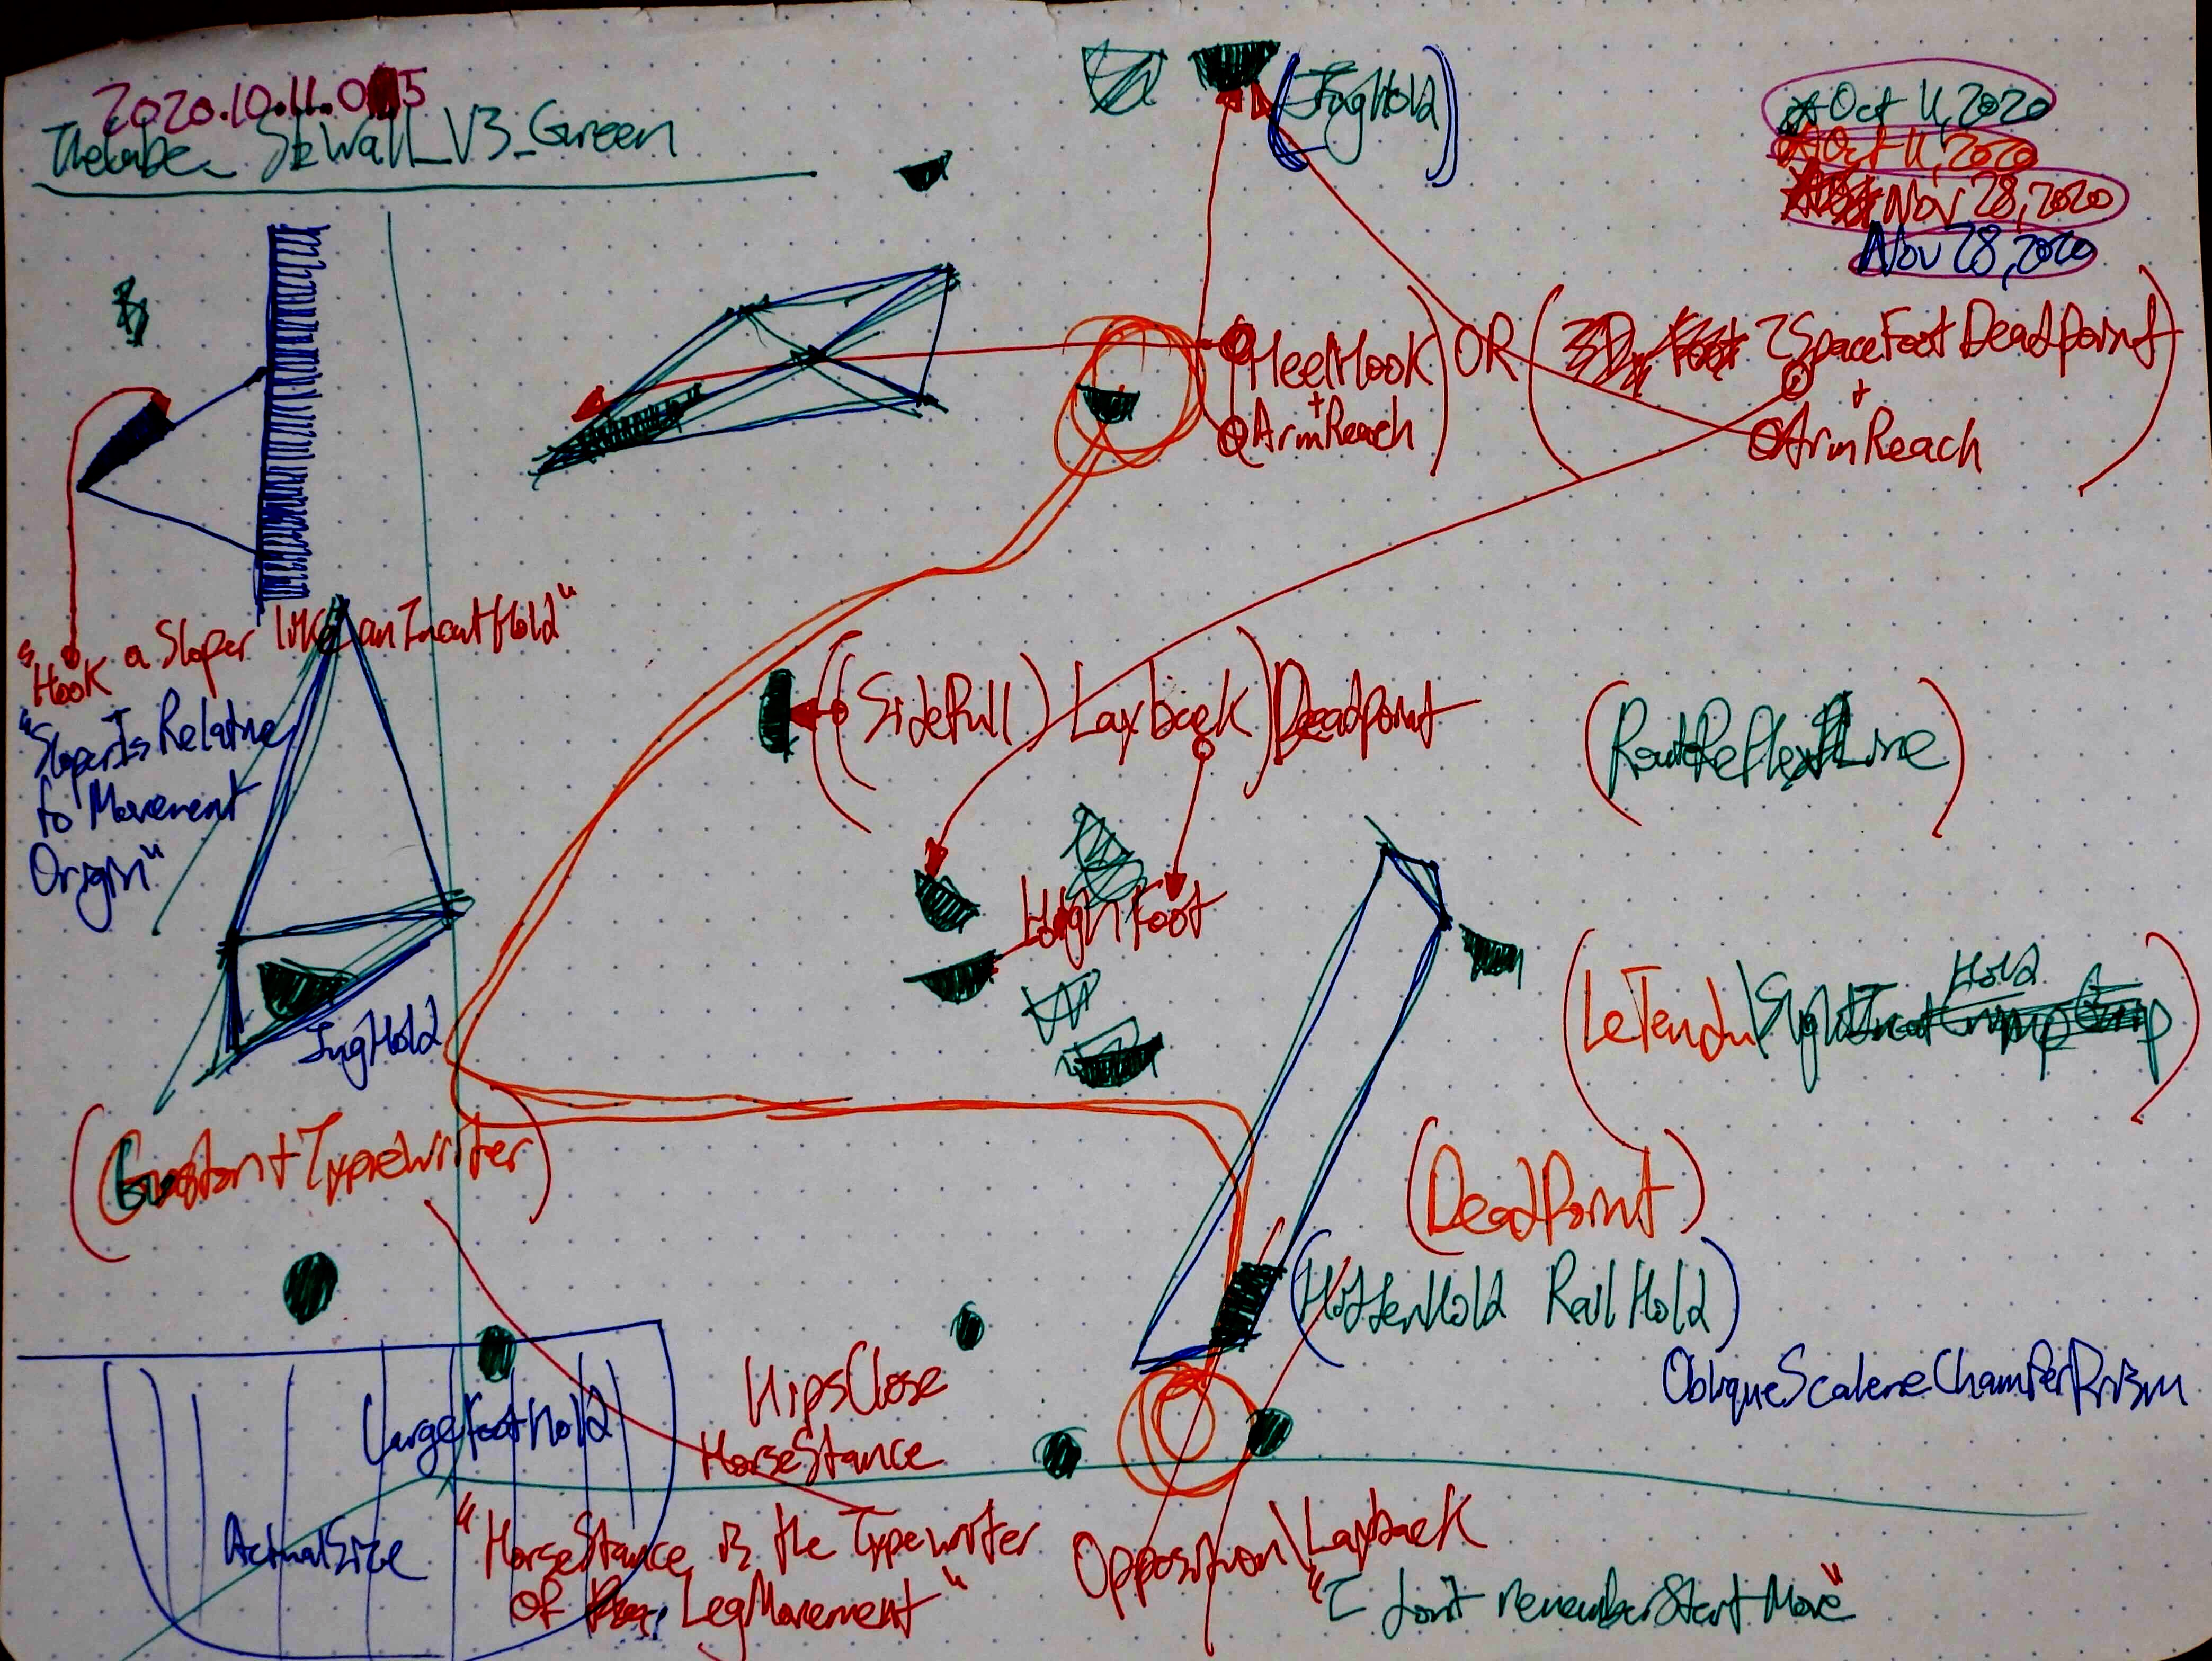 2020.10.11.0
V3_Green
(JugHold)
Oct 11, 2020
Oct 11, 2020
Nov 28, 2020
Nov 28, 2020
(HeelHook + ArmReach) OR (ZSpaceFootDeadpoint + ArmReach)
"Hook a Sloper like an IncutHold"
"SloperIsRelative
to Movement
Origin"
((SidePull) Layback) Deadpoint
(RouteReflexLine)
HighFoot
Hold
(LeTendu\SlightIncut
JugHold
(Gaston+TypeWriter)
(DeadPoint)
RailHold)
ObliqueScaleneChamferPrism
HipsClose
HorseStance
LargeFootHold
ActualSize
"HorseStance is the Typewriter
of LegMovement"
Opposition\Layback
"I don't rememberStartMove"